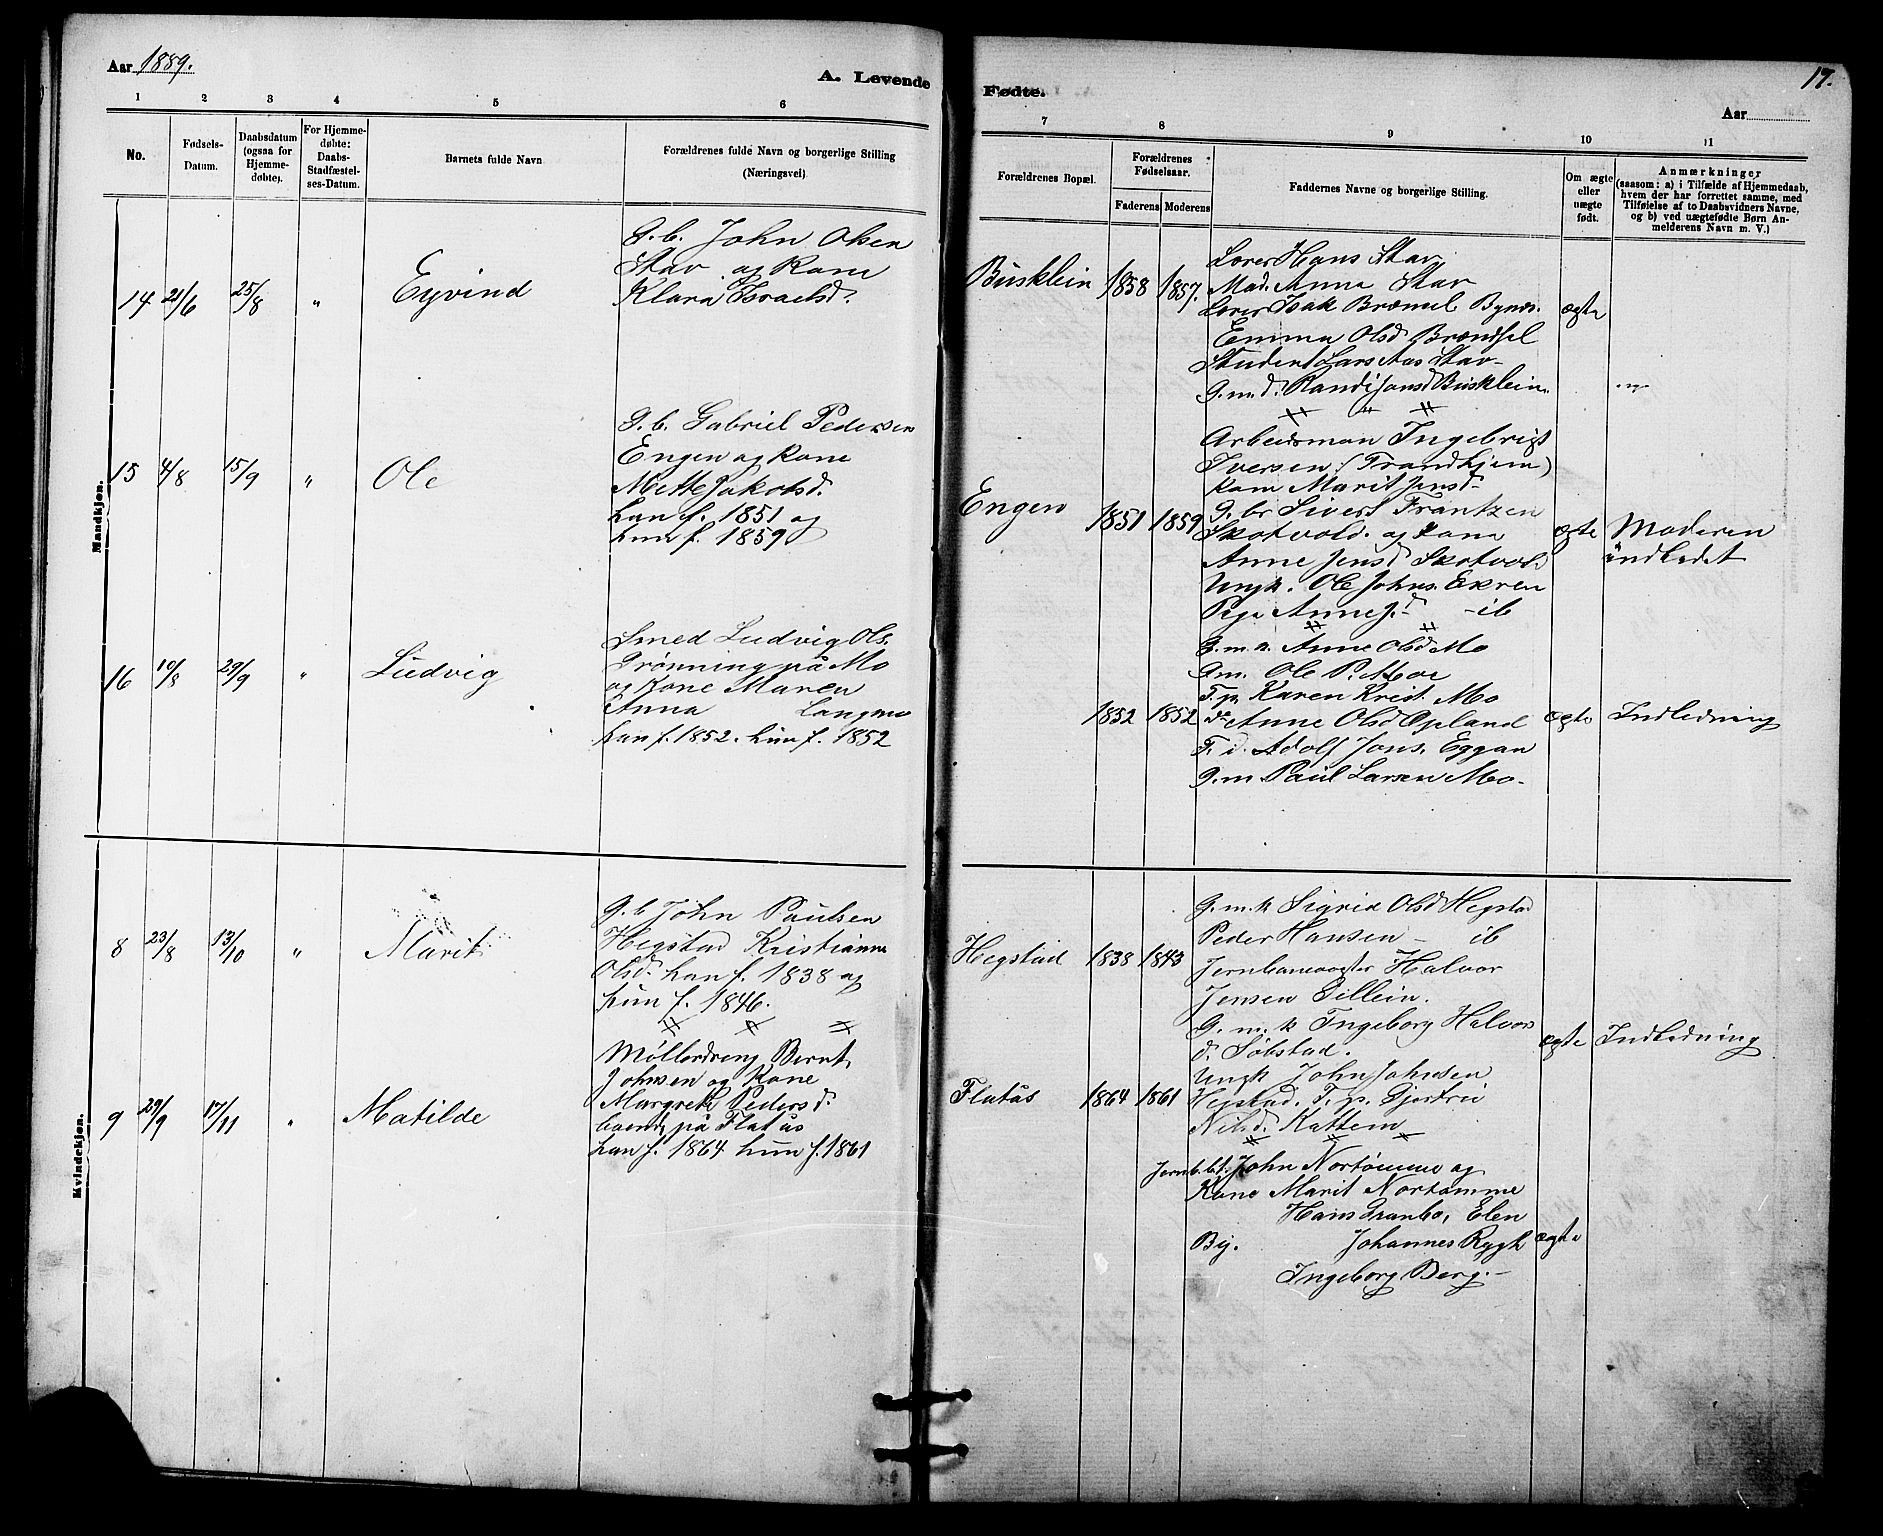 Aar 1889.
A. Levende
Fødte.
17.
Aar
1 2 3 4 5 6
7 8 9 10 11
No.
Fødsels-
Datum.
Daabsdatum
(ogsaa for
Hjemme-
døbte).
For Hjemme-
døbte:
Daabs-
Stadfæstel-
ses-Datum.
Barnets fulde Navn
Forældrenes fulde Navn og borgerlige Stilling
(Næringsvei).
Forældrenes Bopæl.
Forældrenes
Fødselsaar.
Faderens Moderens
Faddernes Navne og borgerlige Stilling.
Om ægte
eller
uægte
født.
Anmærkninger
(saasom: a) i Tilfælde af Hjemmedaab,
hvem der har forrettet samme, med
Tilføielse af to Daabsvidners Navne,
og b) ved uægtefødte Børn An-
melderens Navn m. V.)
Mandkjøn.
14 21/6 25/8 " Eyvind
G. b. John Olsen
Stav og Kone
Klara Israelsd.
Busklein 1858 1857.
Lærer Hans Stav
Mad. Anna Stav
Lærer Isak Bræmel Bynes.
Emma Olsd Brændsel
Student Lars Aas Stav
G.m.d. Randi Jonsd Busklein.
ægte
15 4/8 15/9 " Ole
G. b. Gabriel Pedersen
Engen og Kone
Mette Jakobsd.
han f. 1851 og
hun f. 1859
Engen 1851 1859
Arbeidsman Ingebrigt
Iversen (Trondhjem)
Kone Marit Jensd
G. br Sivert Frantzen
Skotvold. og Kone
Anne Jensd Skotvold
Ungk. Ole Johns. Ekren
Pige Anne J.d - ib
ægte
Moderen
indledet
16 10/8 29/9 " Ludvig
Smed Ludvig Ols.
Trønning på Mo
og Kone Maren
Anna Langmo
han f. 1852. hun f. 1852
1852 1852
G.m.k. Anne Olsd Mo
Gm. Ole P. Moe
T.p. Karen Krist. Mo
do Anne Olsd Opland
T. d. Adolf Jons. Eggan
G.m. Paul Larsen Mo-
ægte Indledning
Kvindekjøn.
8 23/8 13/10 " Marit
G. b John Paulsen
Hegstad Kristianne
Olsd. han f. 1838 og
hun f. 1846.
Hegstad 1838 1843
G.m.k Sigrid Olsd Hegstad
Peder Hansen - ib
Jernbanevogter Halvor
Jensen Sillein.
G.m.k Ingeborg Halvors
d. Søbstad.
Ungk John Johnsen
Hegstad. T.p. Gjertrū
Nilsd. Kattem
ægte Indledning
9 29/9 17/11 " Matilde
Møllerdreng Bernt
Johnsen og Kone
Margrete Pedersd.
boende på Flatås
han f. 1864 hun f. 1861
Flatås 1864 1861
Jernb.bt. John Nortømme og
Kone Marit Nortømme
Hans Granbo, Elen
By. Johannes Rygh
Ingeborg Berg.-
ægte